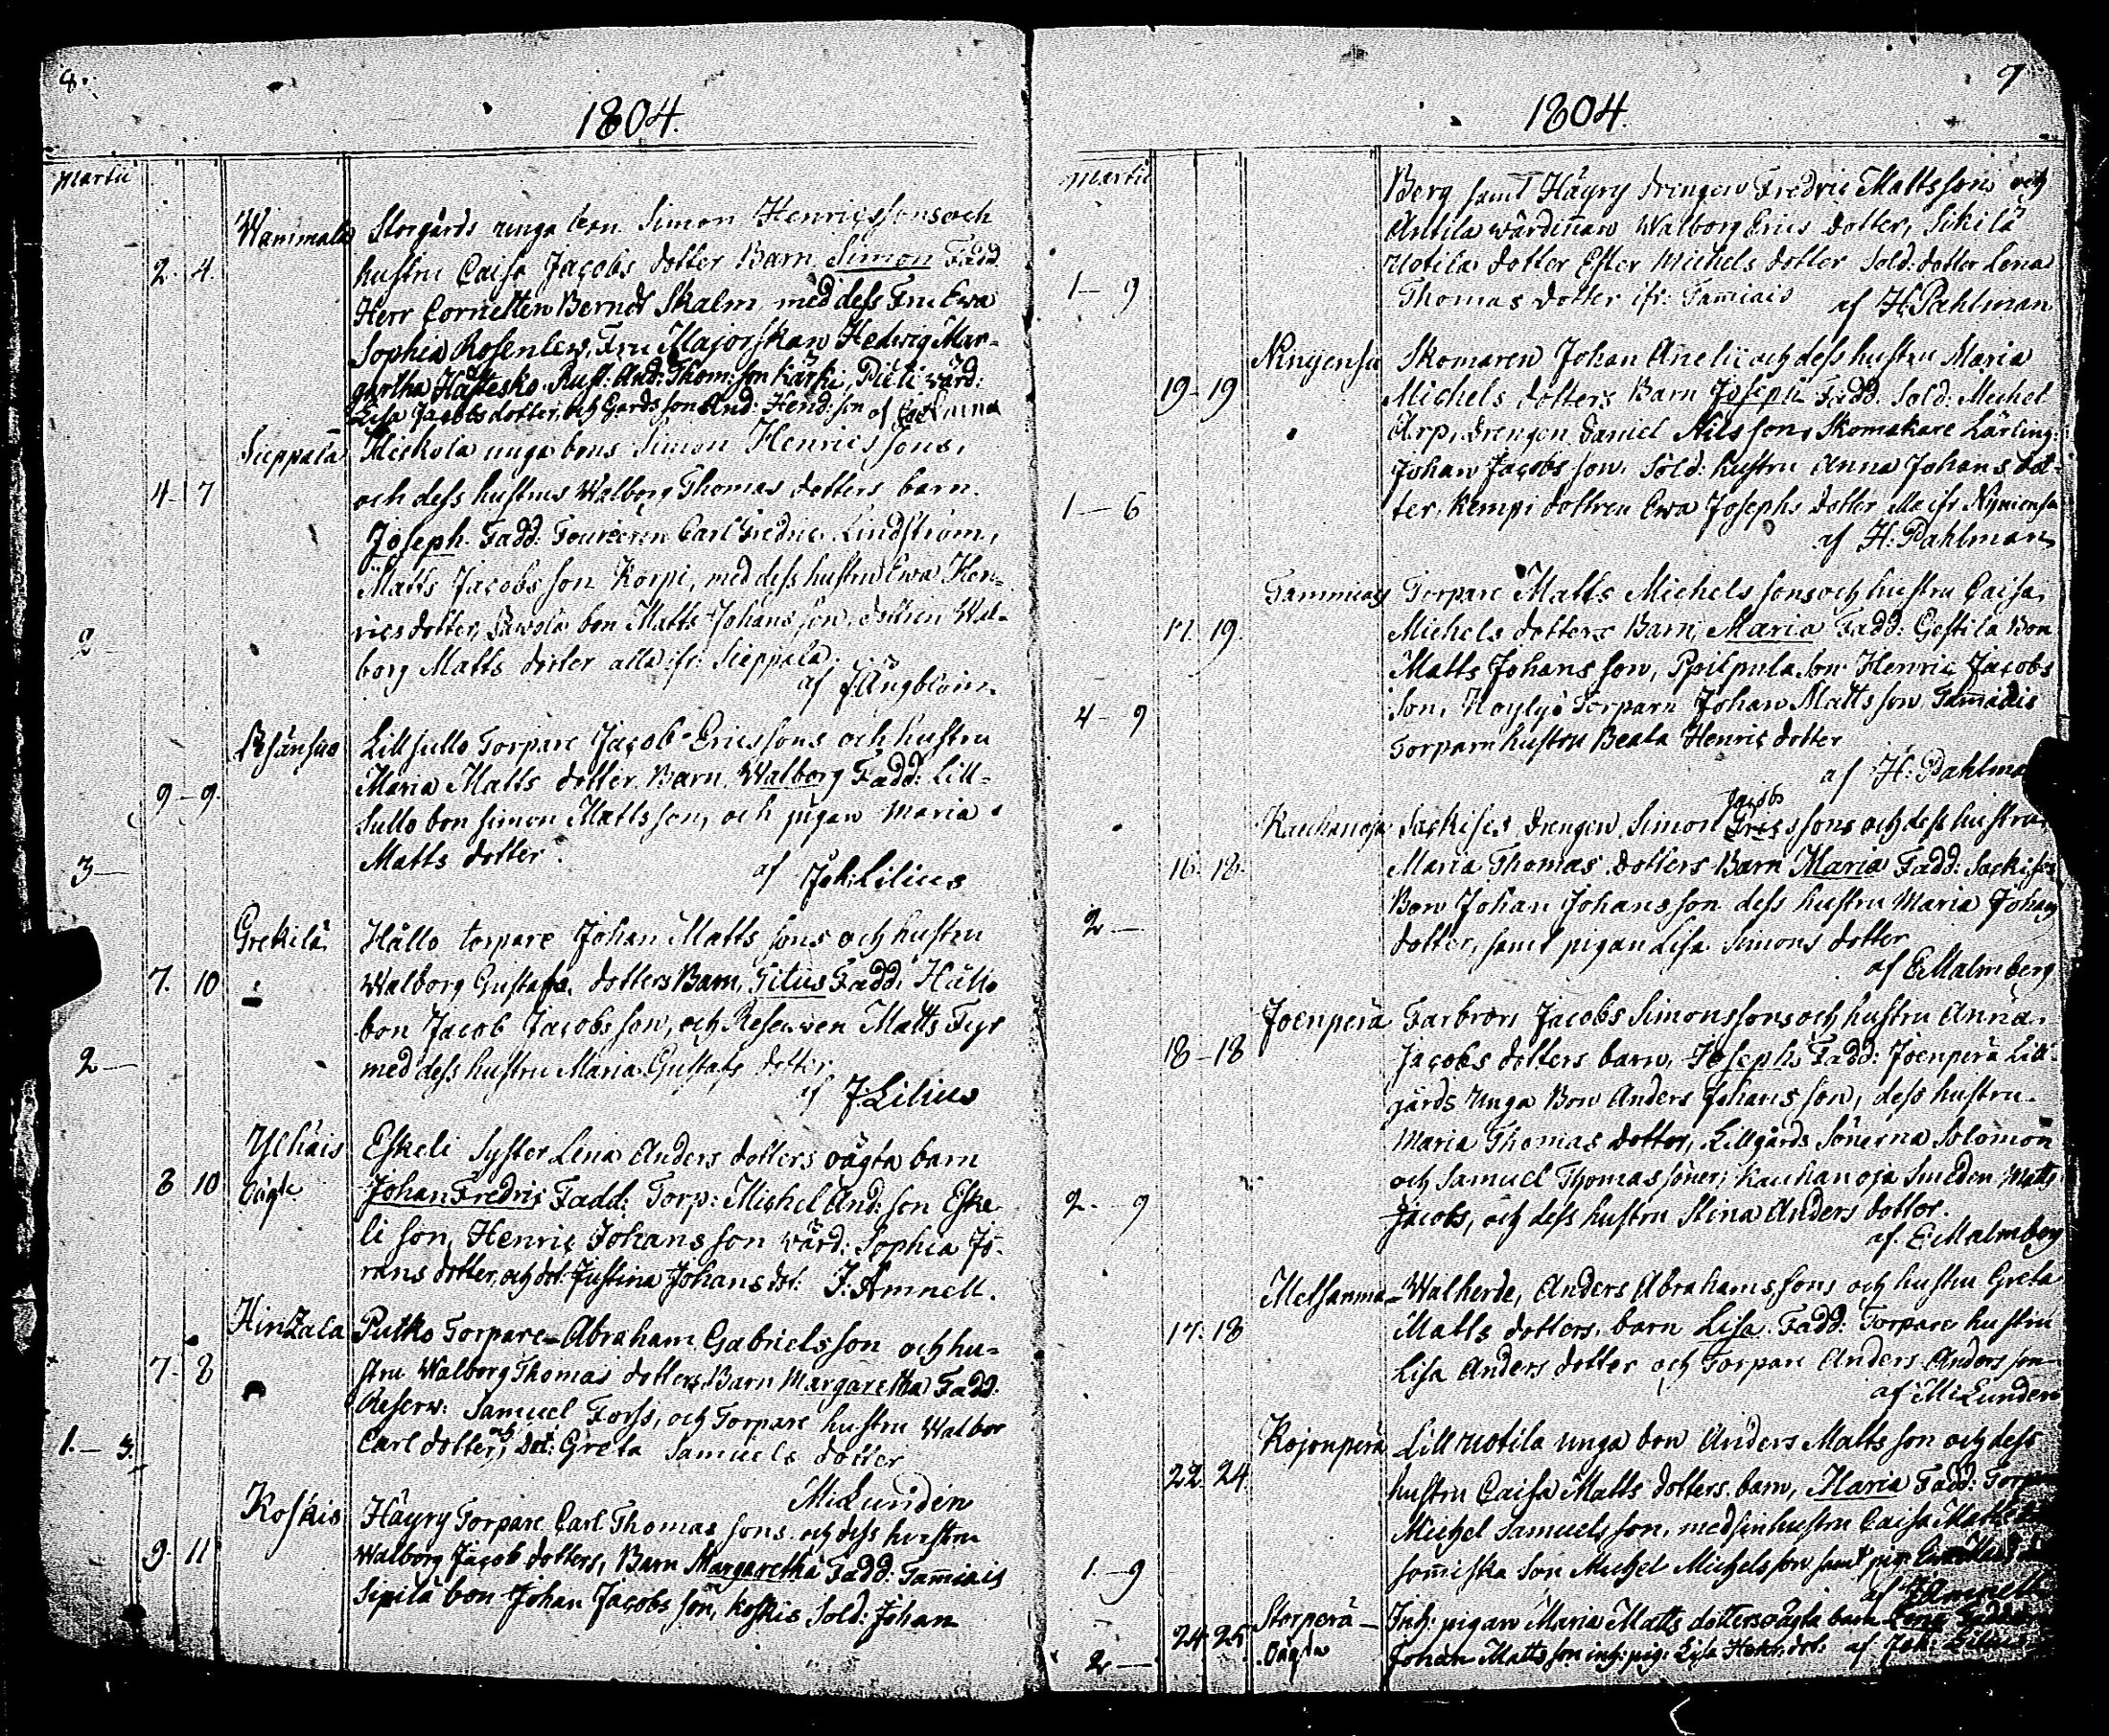 8.
1804.
Martii
Wammala Storgårds unga bon Simon Henricssons och
2. 4. hustru Caisa Jacobs dotter Barn Simon Fadd.
Herr Cornetten Berndt Skalm, med dess Fru Ewa
Sophia Rosenlew, Fru Majorskan Hedwig Mar-
gretha Hästesko. Rust: And: Thom: son Kärki, Pieti wärd:
Lisa Jacobs dotter, och Gårds son And: Hend: son af
Sieppala unga bons Simon Henricssons,
4 - 7 och dess hustrus Walborg Thomas dotters barn.
Joseph. Fadd: Fourieren Carl Fredric Lindström,
Matts Jacobs son Korpi, med dess hustru Ewa Hen-
rics dotter, bon Matts Johans son, dottren Wal-
2 borg Matts dotter alla ifr: Sieppala.
af J Ängblom.
Lillsullo Torpare Jacob Ericssons och hustru
9 - 9. Maria Matts dotter Barn Walborg Fadd: Lill-
Sullo bon Simon Mattsson, och pigan Maria
3 — Matts dotter.
af Joh: Lilius
Grekilä Hållo torpare Johan Matts sons och hustru
7. 10 Walborg Gustafs dotters Barn, Titus Fadd. Hållo
bon Jacob Jacobs son, och Reserven Matts Fyr
2 — med dess hustru Maria Gustafs dotter
af J. Lilius
Ylhäis Eskeli Syster Lena Anders dotters oägta barn
8 10 Oägte Johan Fredric Fadd: Torp: Michel And: son Eske
li son, Henric Johans son wärd: Sophia Jö-
rans dotter, och dot: Justina Johans dot: J. Amnell.
Hinzala Putko Torpare Abraham Gabrielsson och hu-
7 - 8 stru Walborg Thomas dotters Barn Margaretha Fadd:
Reserv: Samuel Forss, och Torpare hustru Walbor
1. — 3. Carl dotter, och Dot: Greta Samuels dotter
M: Lunden
Koskis Häyry Torpare Carl Thomas sons och dess hustru
9. 11 Walborg Jacob dotters, Barn Margaretha Fadd: Tamiais
Sipilä bon Johan Jacobs son, Koskis Sold: Johan
9
1804.
Martii
Berg samt Häyry drengen Fredric Mattsson och
Antila wärdinnan Walborg Erics dotter,
Uotila dotter Ester Michels dotter Sold: dotter Lena
1 — 9 Thomas dotter ifr: Tamiais af H: Pahlman
Skomaren Johan och dess hustru Maria
19 - 19 Michels dotters Barn Joseph Fadd. Sold: Michel
Arp, drengen Daniel Nils son, Skomakare Lärling:
Johan Jacobs son. Sold: hustru Anna Johans dot-
1 — 6 ter. Kempi dottren Ewa Josephs dotter alla ifr
af H: Pahlman
Tammiais Torpare Matts Michels sons och hustru Caisa
17. 19. Michels dotters Barn, Maria Fadd: Gestila Bon
Matts Johans son, son Henric Jacobs
4 - 9 Son, Torparn Johan Matts son Tamiais
Torparn hustru Beata Henric dotter
af H: Pahlman
Jacobs
Kauhanoja drengen Simon Erics sons och dess hustru
16. 18. Maria Thomas dotters Barn Maria Fadd:
Bon Johan Johansson dess hustru Maria Johans
2 — dotter, samt pigan Lisa Simons dotter
af E: Malmberg
Joenperä Farbrors Jacobs Simonssons och hustru Anna
18 - 18 Jacobs dotters barn, Joseph Fadd: Joenperä Lill
gårds Unga Bon Anders Johans son, dess hustru
Maria Thomas dotter, Lillgårds Sönerna Solomon
och Samuel Thomas söner; Kauhanoja Smeden Matts
2. - 9 Jacobs, och dess hustru Stina Anders dotter.
af E: Malmberg
Metsänma - Walherde, Anders Abrahams sons och hustru Greta
17. 18 Matts dotters, barn Lisa. Fadd: Torpare hustru
Lisa Anders dotter och Torpare Anders Anders son
af M: Lunden
Kojonperä Lill Uotila unga bon Anders Matts son och dess
22. 24. hustru Caisa Matts dotters barn, Maria Fadd: Torp
Michel Samuels son, med sin hustru Caisa
1. - 9 son Michel Michels son samt pig:
af J: Amnell
Storperä - Inh: pigan Maria Matts dotters oägta barn Lena
24. 25 Oägta
2 — Johan Matts son inh: pig: Lisa Henr: dot: af Joh: Lilius